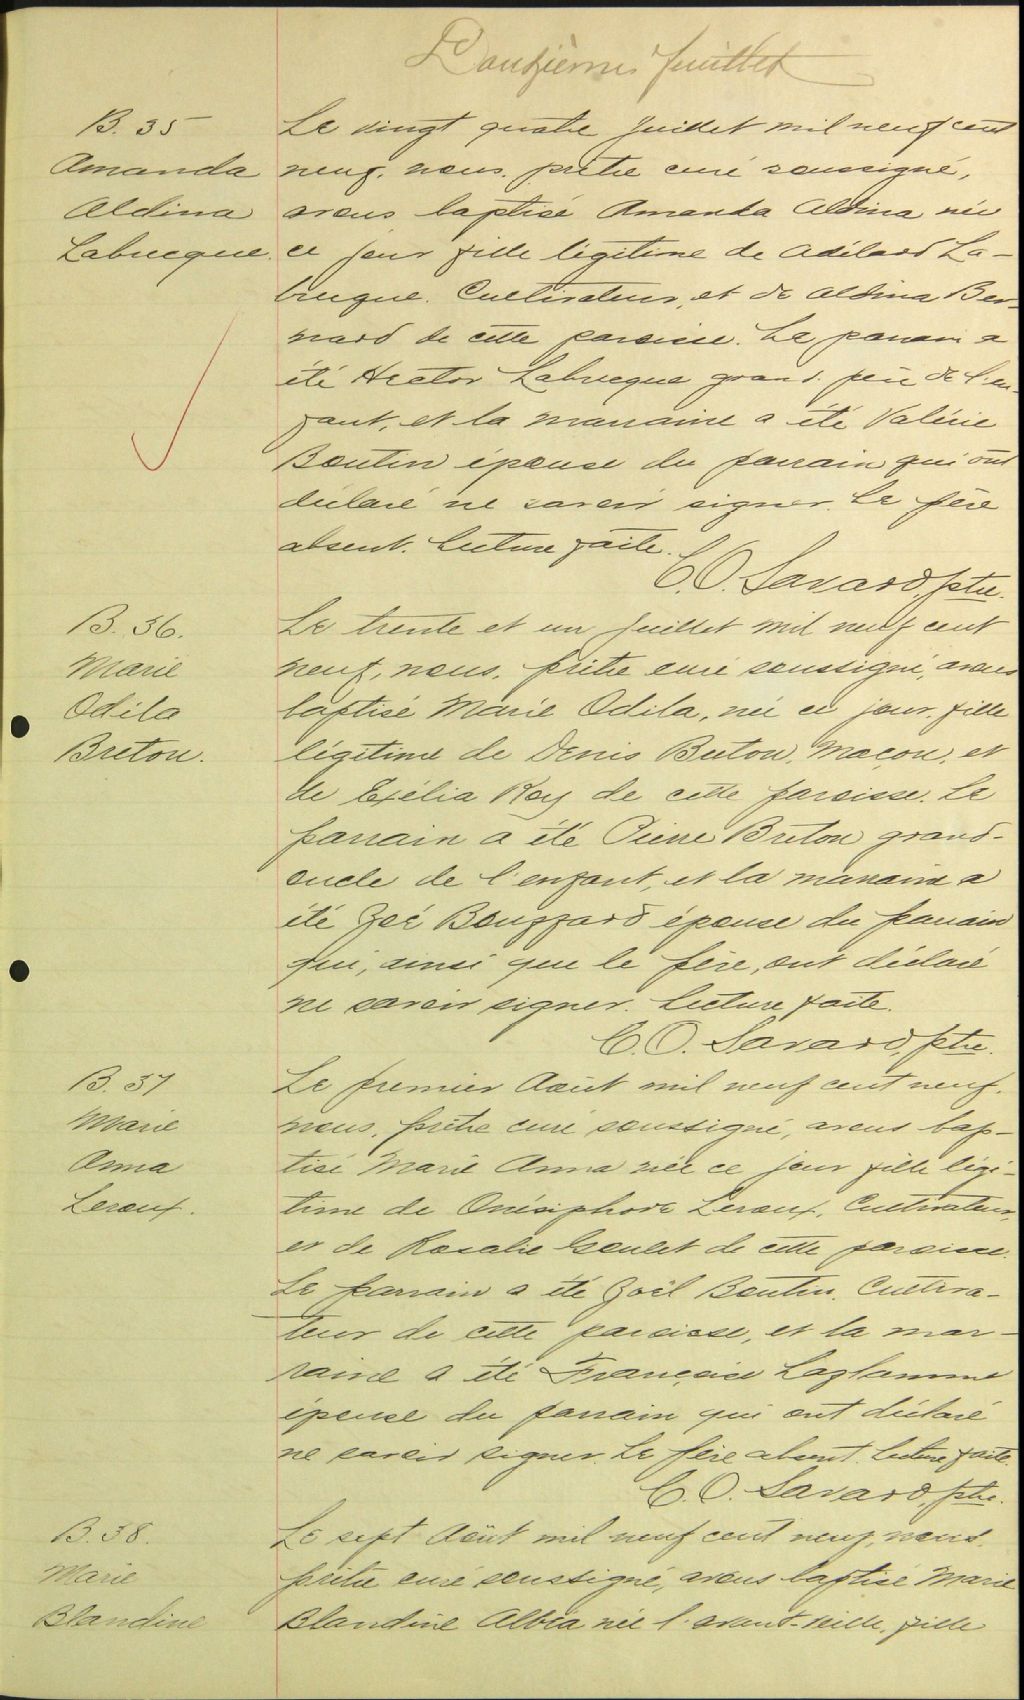 Douzième feuillet
B. 35
Amanda
Aldina
Labrecque.
Le vingt quatre Juillet mil neuf cent
neuf, nous, prêtre curé soussigné,
avons baptisé Amanda Aldina née
ce jour fille légitime de Adélard La-
brecque. Cultivateur, et de Aldina Ber-
nard de cette paroisse. Le parrain a
été Hector Labrecque grand. père de l'en-
fant, et la marraine a été Valérie
Boutin épouse du parrain qui ont
déclaré ne savoir signer. Le père
absent. Lecture faite.
C. O. Savard, ptre.
B. 36.
Marie
Odila
Breton.
Le trente et un Juillet mil neuf cent
neuf, nous, prêtre curé soussigné, avons
baptisé Marie Odila, née ce jour, fille
légitime de Denis Breton, Maçon, et
de Exélia Roy de cette paroisse. Le
parrain a été Pierre Breton grand-
oncle de l'enfant, et la marraine a
été Zoé Bouffard épouse du parrain
qui, ainsi que le père, ont déclaré
ne savoir signer. Lecture faite.
C. O. Savard, ptre.
B. 37
Marie
Anna
Leroux.
Le premier Août mil neuf cent neuf,
nous, prêtre curé soussigné, avons bap-
tisé Marie Anna née ce jour fille légi-
time de Onésiphore Leroux, Cultivateur,
et de Rosalie Goulet de cette paroisse.
Le parrain a été Zoël Boutin, Cultiva-
teur de cette paroisse, et la mar-
raine a été Françoise Laflamme
épouse du parrain qui ont déclaré
ne savoir signer. Le père absent. Lecture faite.
C. O. Savard, ptre.
B. 38.
Marie
Blandine
Le sept Août mil neuf cent neuf, nous,
prêtre curé soussigné, avons baptisé Marie
Blandine Albéa née l'avant-veille, fille